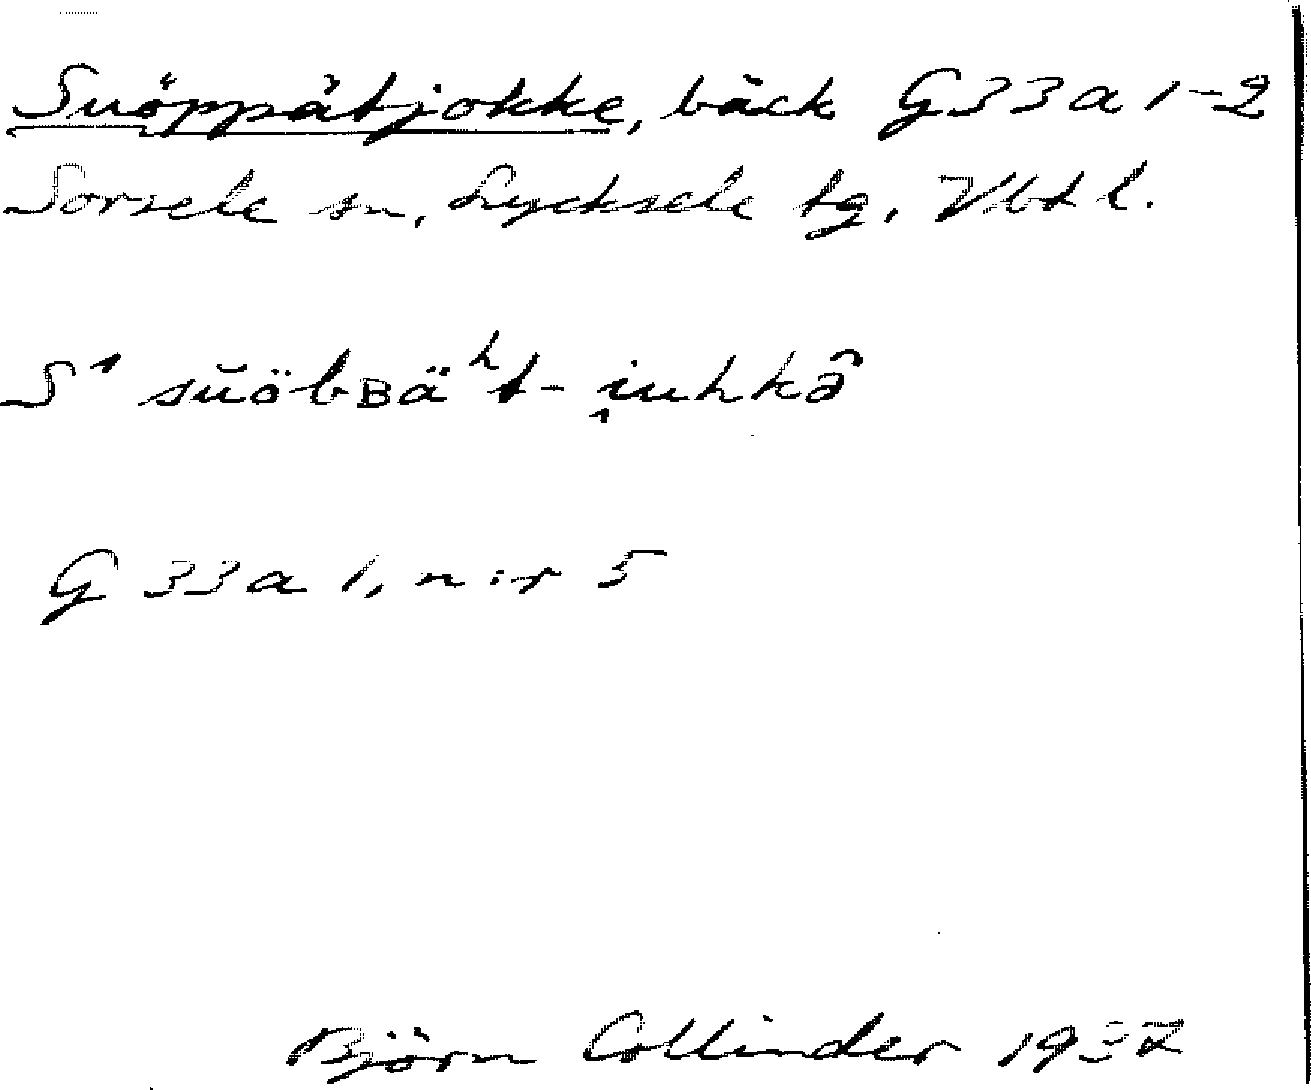 Suöppätjokke, bäck G33a1-2
Sorsele sn, Lycksele tg. Vbtl.
S¹ sŭöbʙäʰt-i̭uhkə̑
G 33a1, n:r 5
Björn Collinder 1937